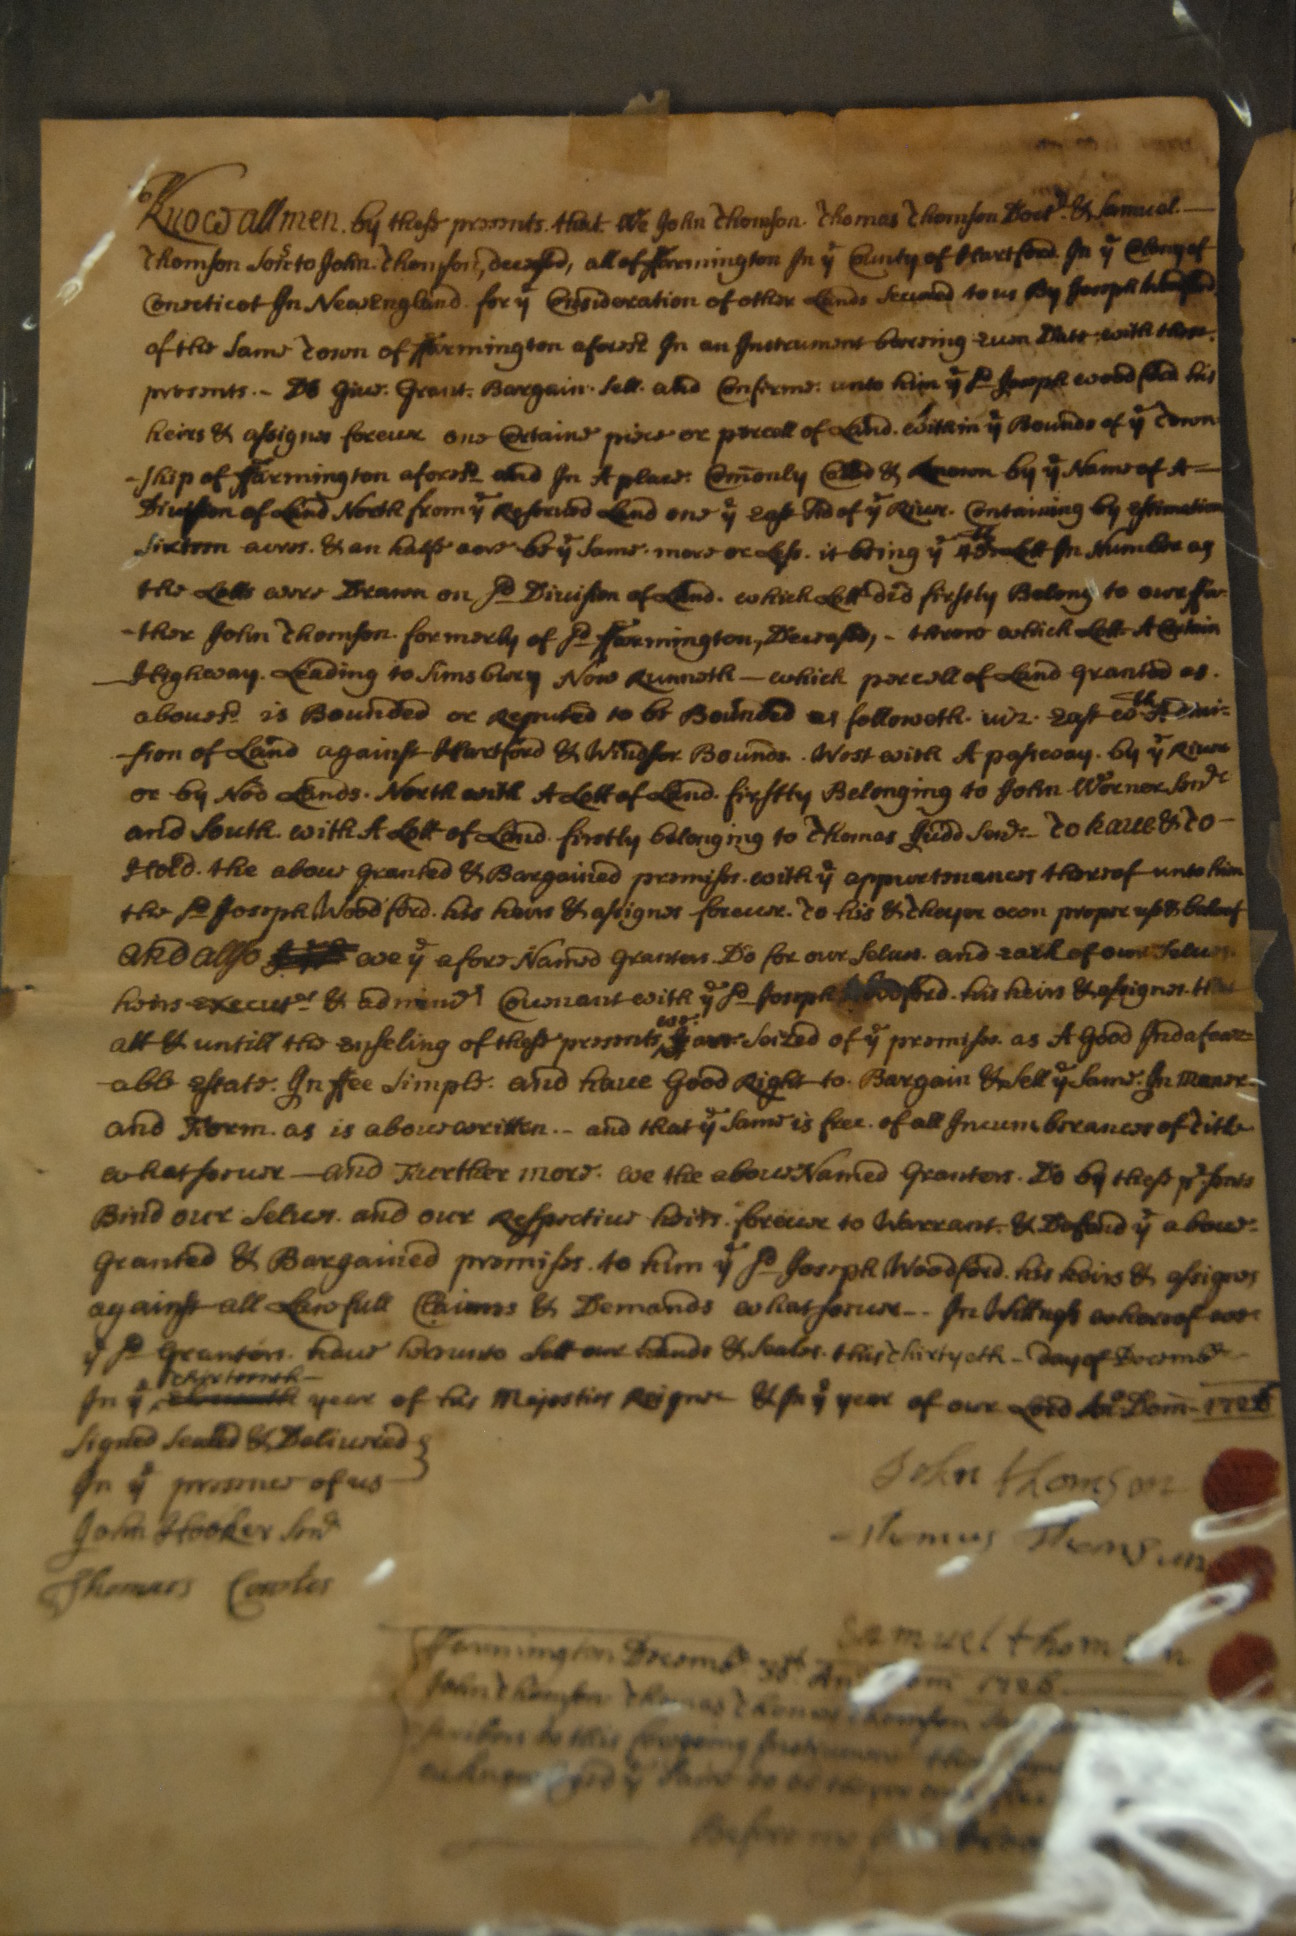 Know all men by these presents that We John Thomson Thomas Thomson Doctr & Samuel
Thomson Sons to John Thomson, decesed, all of ffarmington In ye County of Hartford In ye Colony of
Conecticot In New England for ye Consideration of other Lands secured to us By Joseph Woodford
of the same Town of ffarmington aforesd In an Instrument bearing even Date with these
presents - Do Give Grant Bargain Sell and Confirme unto him ye sd Joseph woodford his
heirs & assignes forever one Certaine piece or percell of Land within ye Bounds of ye Town
-ship of ffarmington aforesd and In A place Comonly Called & known by ye Name of A=
Division of Land North from ye Reserved Land one ye East sid of ye River Containing by estimation
sixteen acres & an halfe acre be ye same more or Less it being ye Lott In Number as
the Lotts were Drawn on sd Division of Land which Lott did firstly Belong to our ffa-
-ther John Thomson formerly of sd ffarmington, Decesed, - threw which Lott A Certain
Highway Leading to Simsbury Now Runneth - which percell of Land granted as
abovesd is Bounded or Reputed to be Bounded as followeth viz East Divi-
-sion of Land against Hartford & Windsor Bounds West with A passway by ye River
or by Nod Lands North with A Lott of Land firstly Belonging to John Worner Senr
and South with A Lott of Land firstly belonging to Thomas Judd Senr - To have & To -
Hold the above granted & Bargained premises with ye appurtenances thereof unto him
the sd Joseph Woodford his heirs & assignes forever To his & Theyer own proper use & behoof
And also we ye afore Named Granters Do for our selves and each of our selves
heirs executrs & adminrs Covenant with ye sd Joseph Woodford his heirs & assignes that
att & untill the enseling of these presents we are Seized of ye premises as A Good Indafeaz=
able estate In ffee Simple and have Good Right to Bargain & Sell ye same In Maner
and Form as is above written - and that ye same is free of all Incumberances of Title
whatsoever - and Further more we the above Named Granters Do by these prsents
Bind our selves and our Respective heirs forever to Warrant & Defend ye above
granted & Bargained premises to him ye sd Joseph Woodford his heirs & assignes
against all Lawfull Claims & Demands whatsoever - In Wittness whereof we
ye sd Granters have hereunto sett our hands & Seales this Thirtyeth day of Decembr
In ye Thirteenth year of his Majesties Reigne & In ye year of our Lord Ano Dom 1726
Signed Sealed & Delivered
In ye presence of us
John Hooker Senr
Thomas Cowles
John thomson
Thomas Thomson
Samuel thomson
ffarmington Decembr 30th Dom 1726
John Thomson Thomas Thomson
scribers to this foregoing Instrument
acknowledged ye same to be theyer
Before me